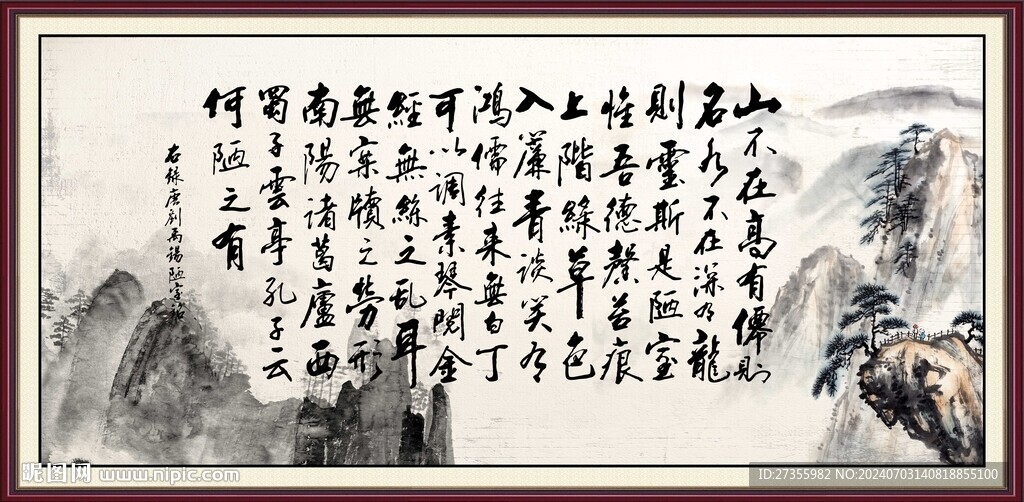 山不在高有僊則
名水不在深有龍
則靈斯是陋室
惟吾德馨苔痕
上階綠草色
入簾青談笑有
鴻儒往来無白丁
可以調素琴閱金
經無絲之亂耳
無案牘之勞形
南陽諸葛廬西
蜀子雲亭孔子云
何陋之有
右錄唐劉禹錫陋室銘
昵图网 www.nipic.com
ID:27355982 NO:20240703140818855100